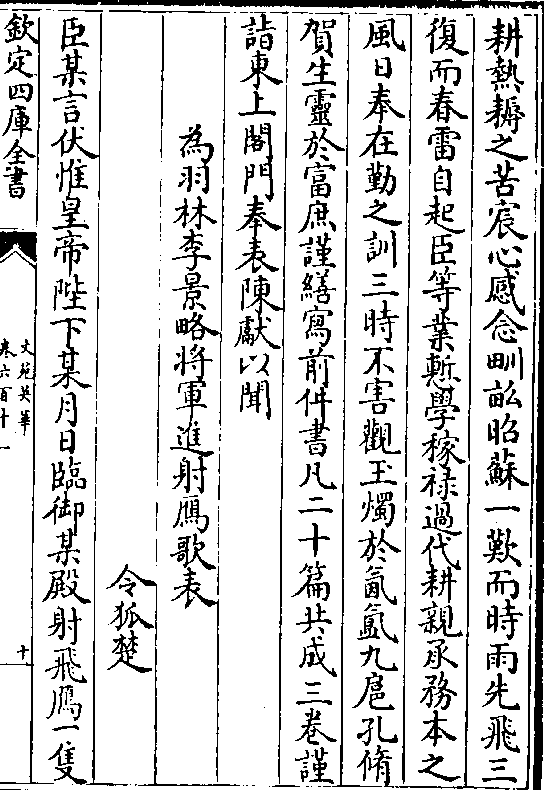 耕熱耨之苦宸心感念畎畝昭蘇一歎而時雨先飛三
復而春雷自起臣等業慙學稼禄過代耕親承務本之
風日奉在勤之訓三時不害觀玉燭於氤氲九扈孔脩
賀生靈於富庶謹繕寫前件書凡二十篇共成三卷謹
詣東上閤門奉表陳獻以聞
為羽林李景略將軍進射鴈歌表
令狐楚
臣某言伏惟皇帝陛下某月日臨御某殿射飛鴈一隻
欽定四庫全書
文苑英華
卷六百十一
十